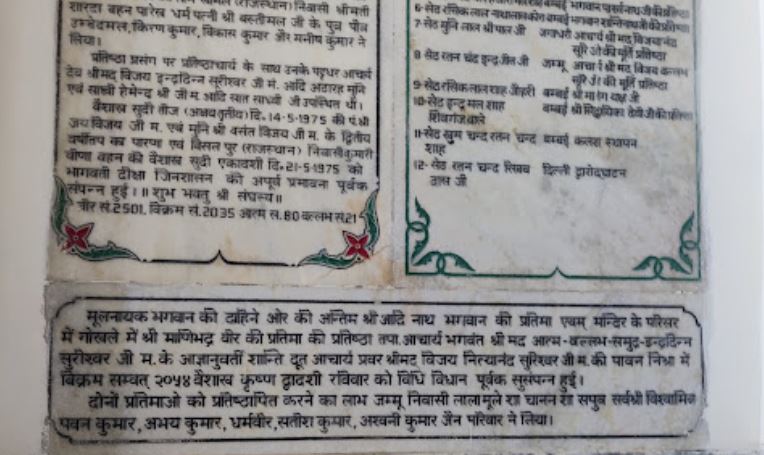 (राजस्थान) निवासी श्रीमती
शारदा बहन पारेख धर्म पत्नी श्री बस्तीमल जी के पुत्र पौत्र
उम्मेदमल, किरण कुमार, विकास कुमार और मनीष कुमार ने
लिया।
प्रतिष्ठा प्रसंग पर प्रतिष्ठाचार्य के साथ उनके पट्टधर आचार्य
देव श्रीमद् विजय इन्द्रदिन्न सूरीश्वर जी मं. आदि अठारह मुनि
एवं साध्वी हेमेन्द्र श्री जी म. आदि सात साध्वी जी उपस्थित थी।
वैशाख सुदी तीज (अक्षय तृतीया) दि. 14-5-1975 की पं. श्री
जय विजय जी म. एवं मुनि श्री वसंत विजय जी म. के द्वितीय
वर्षीतप का पारणा एवं बिसल पुर (राजस्थान) निवासी कुमारी
वीणा बहन की वैशाख सुदी एकादशी दि. 21-5-1975 को
भागवती दीक्षा जिनशासन की अपूर्व प्रभावना पूर्वक
संपन्न हुई। ॥ शुभ भवतु श्री संघस्य॥
वीर सं. 2501, विक्रम सं. 2035 आत्म सं. 80 वल्लभ सं. 21
6-सेठ रसिक लाल बम्बई भगवान
7-सेठ मुनि लाल श्री पाल जी जगाधरी आचार्य श्री मद् विजयानंद
सूरि जी की मूर्ति प्रतिष्ठा
8 सेठ रतन चंद इन्द्रजीत जी जम्मू आचार्य श्री मद् विजय वल्लभ
सूरि जी की मूर्ति प्रतिष्ठा
9-सेठ रसिक लाल शाह जौहरी बम्बई श्री यक्ष जी
10-सेठ इन्दु मल शाह बम्बई श्री देवी जी
शिवगंज वाले
11-सेठ खुम चन्द रतन चन्द बम्बई कलश स्थापन
शाह
12- सेठ रतन चन्द रिखब दिल्ली द्वारोद्घाटन
दास जी
मूलनायक भगवान की दाहिने ओर की अन्तिम श्री आदि नाथ भगवान की प्रतिमा एवम् मन्दिर के परिसर
में गोखले में श्री माणिभद्र वीर की प्रतिमा की प्रतिष्ठा तपा. आचार्य भगवंत श्री मद आत्म-वल्लभ-समुद्र-इन्द्रदिन्न
सुरीश्वर जी म. के आज्ञानुवर्ती शान्ति दूत आचार्य प्रवर श्रीमद् विजय नित्यानंद सुरिश्वर जी म. की पावन निश्रा में
विक्रम सम्वत् २०५४ वैशाख कृष्ण द्वादशी रविवार को विधि विधान पूर्वक सुसंपन्न हुई।
दोनों प्रतिमाओ को प्रतिष्ठापित करने का लाभ जम्मू निवासी लाला मूले शा चानन शा सपुत्र सर्वश्री विश्वामित्र
पवन कुमार, अभय कुमार, धर्मवीर, सतीश कुमार, अश्वनी कुमार जैन परिवार ने लिया।